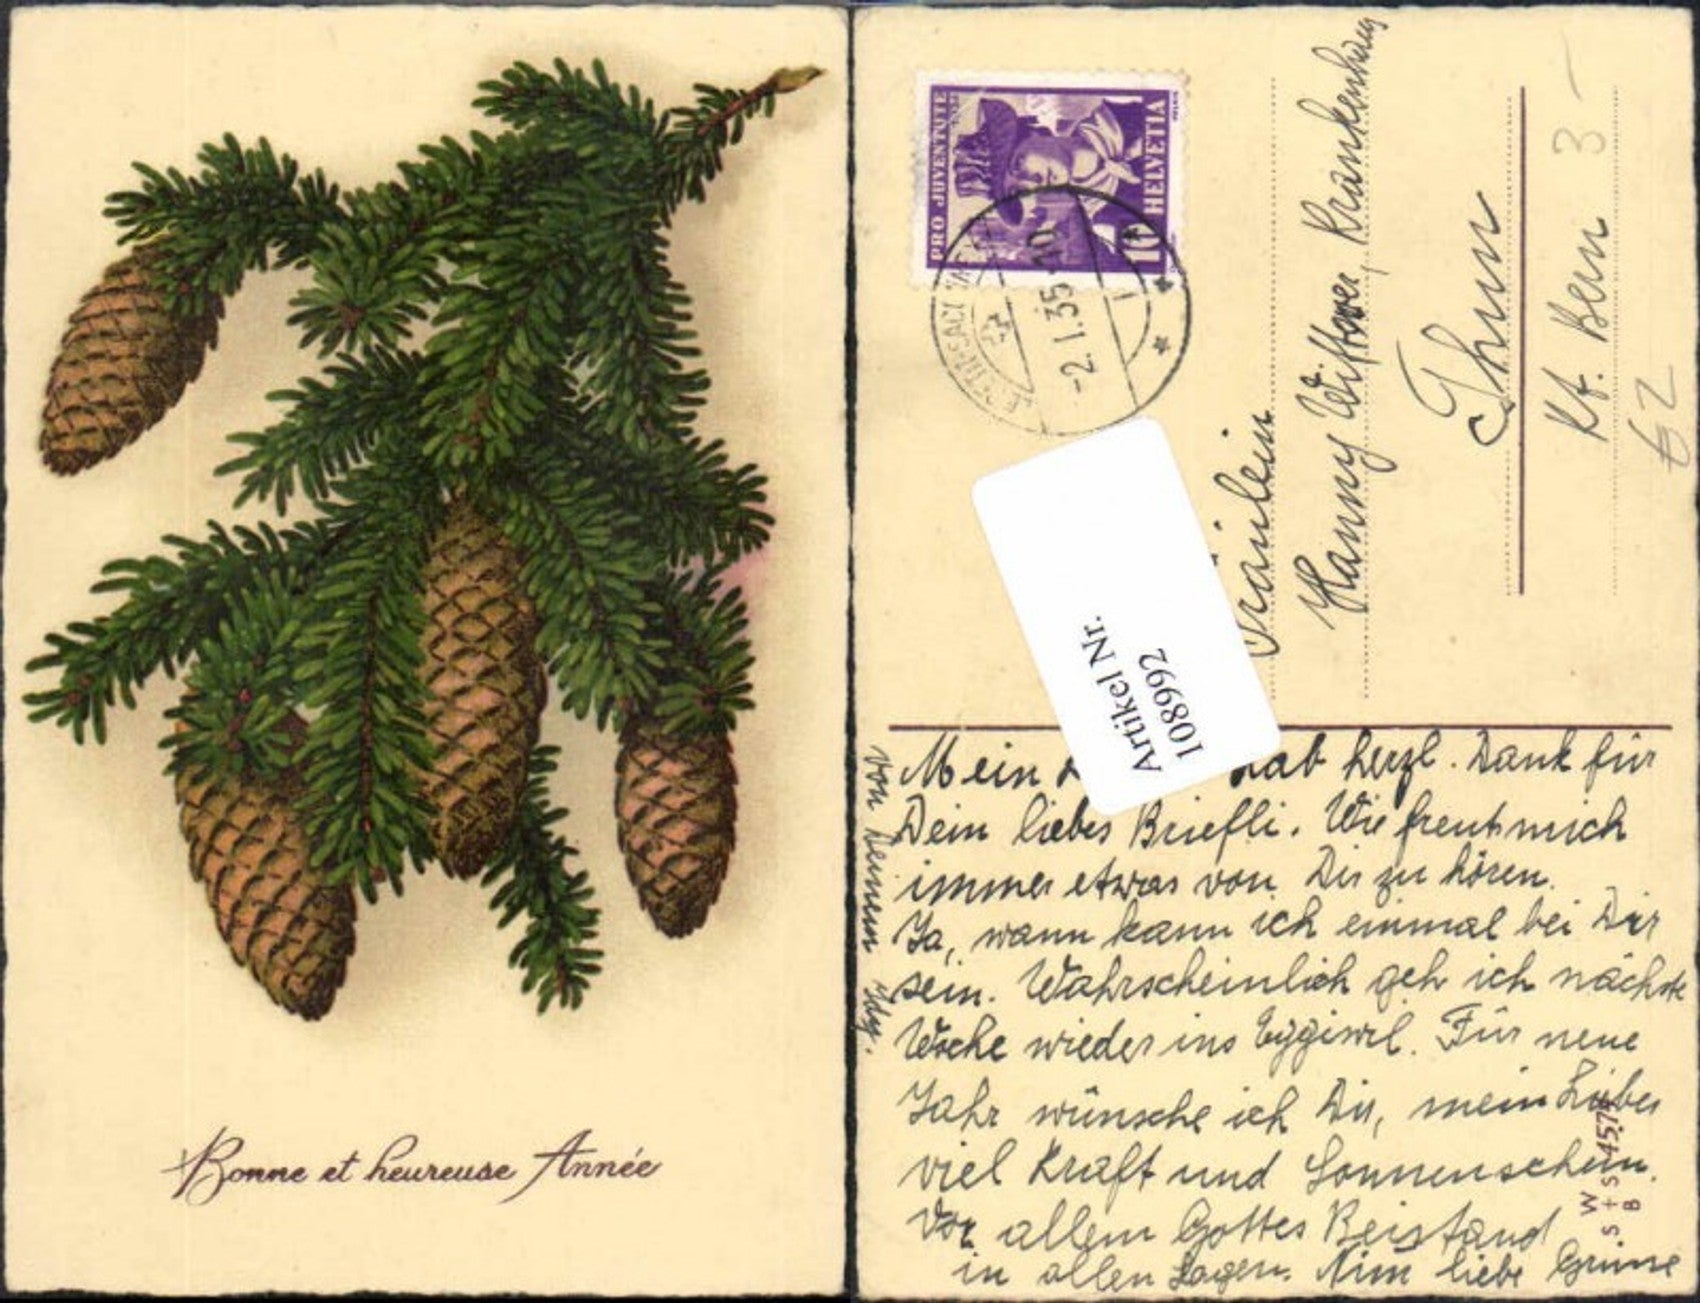 Bonne et heureuse Année
PRO JUVENTUTE
HELVETIA
10
-2.I.35-10
Fräulein
Hanny Wittwer, Krankenhaus
Thun
Kt. Bern
3-
62
Artikel Nr.
108992
Mein hab herzl. Dank für
Dein liebes Briefli. Wie freut mich
immer etwas von Dir zu hören.
Ja, wann kann ich einmal bei Dir
sein. Wahrscheinlich geh ich nächste
Woche wieder ins Eggiwil. Für neue
Jahr wünsche ich Dir, mein Liebes
viel Kraft und Sonnenschein.
Vor allem Gottes Beistand
in allen Lagen. Nim liebe Grüsse
von Deinem Idy.
W
S+S 457
B